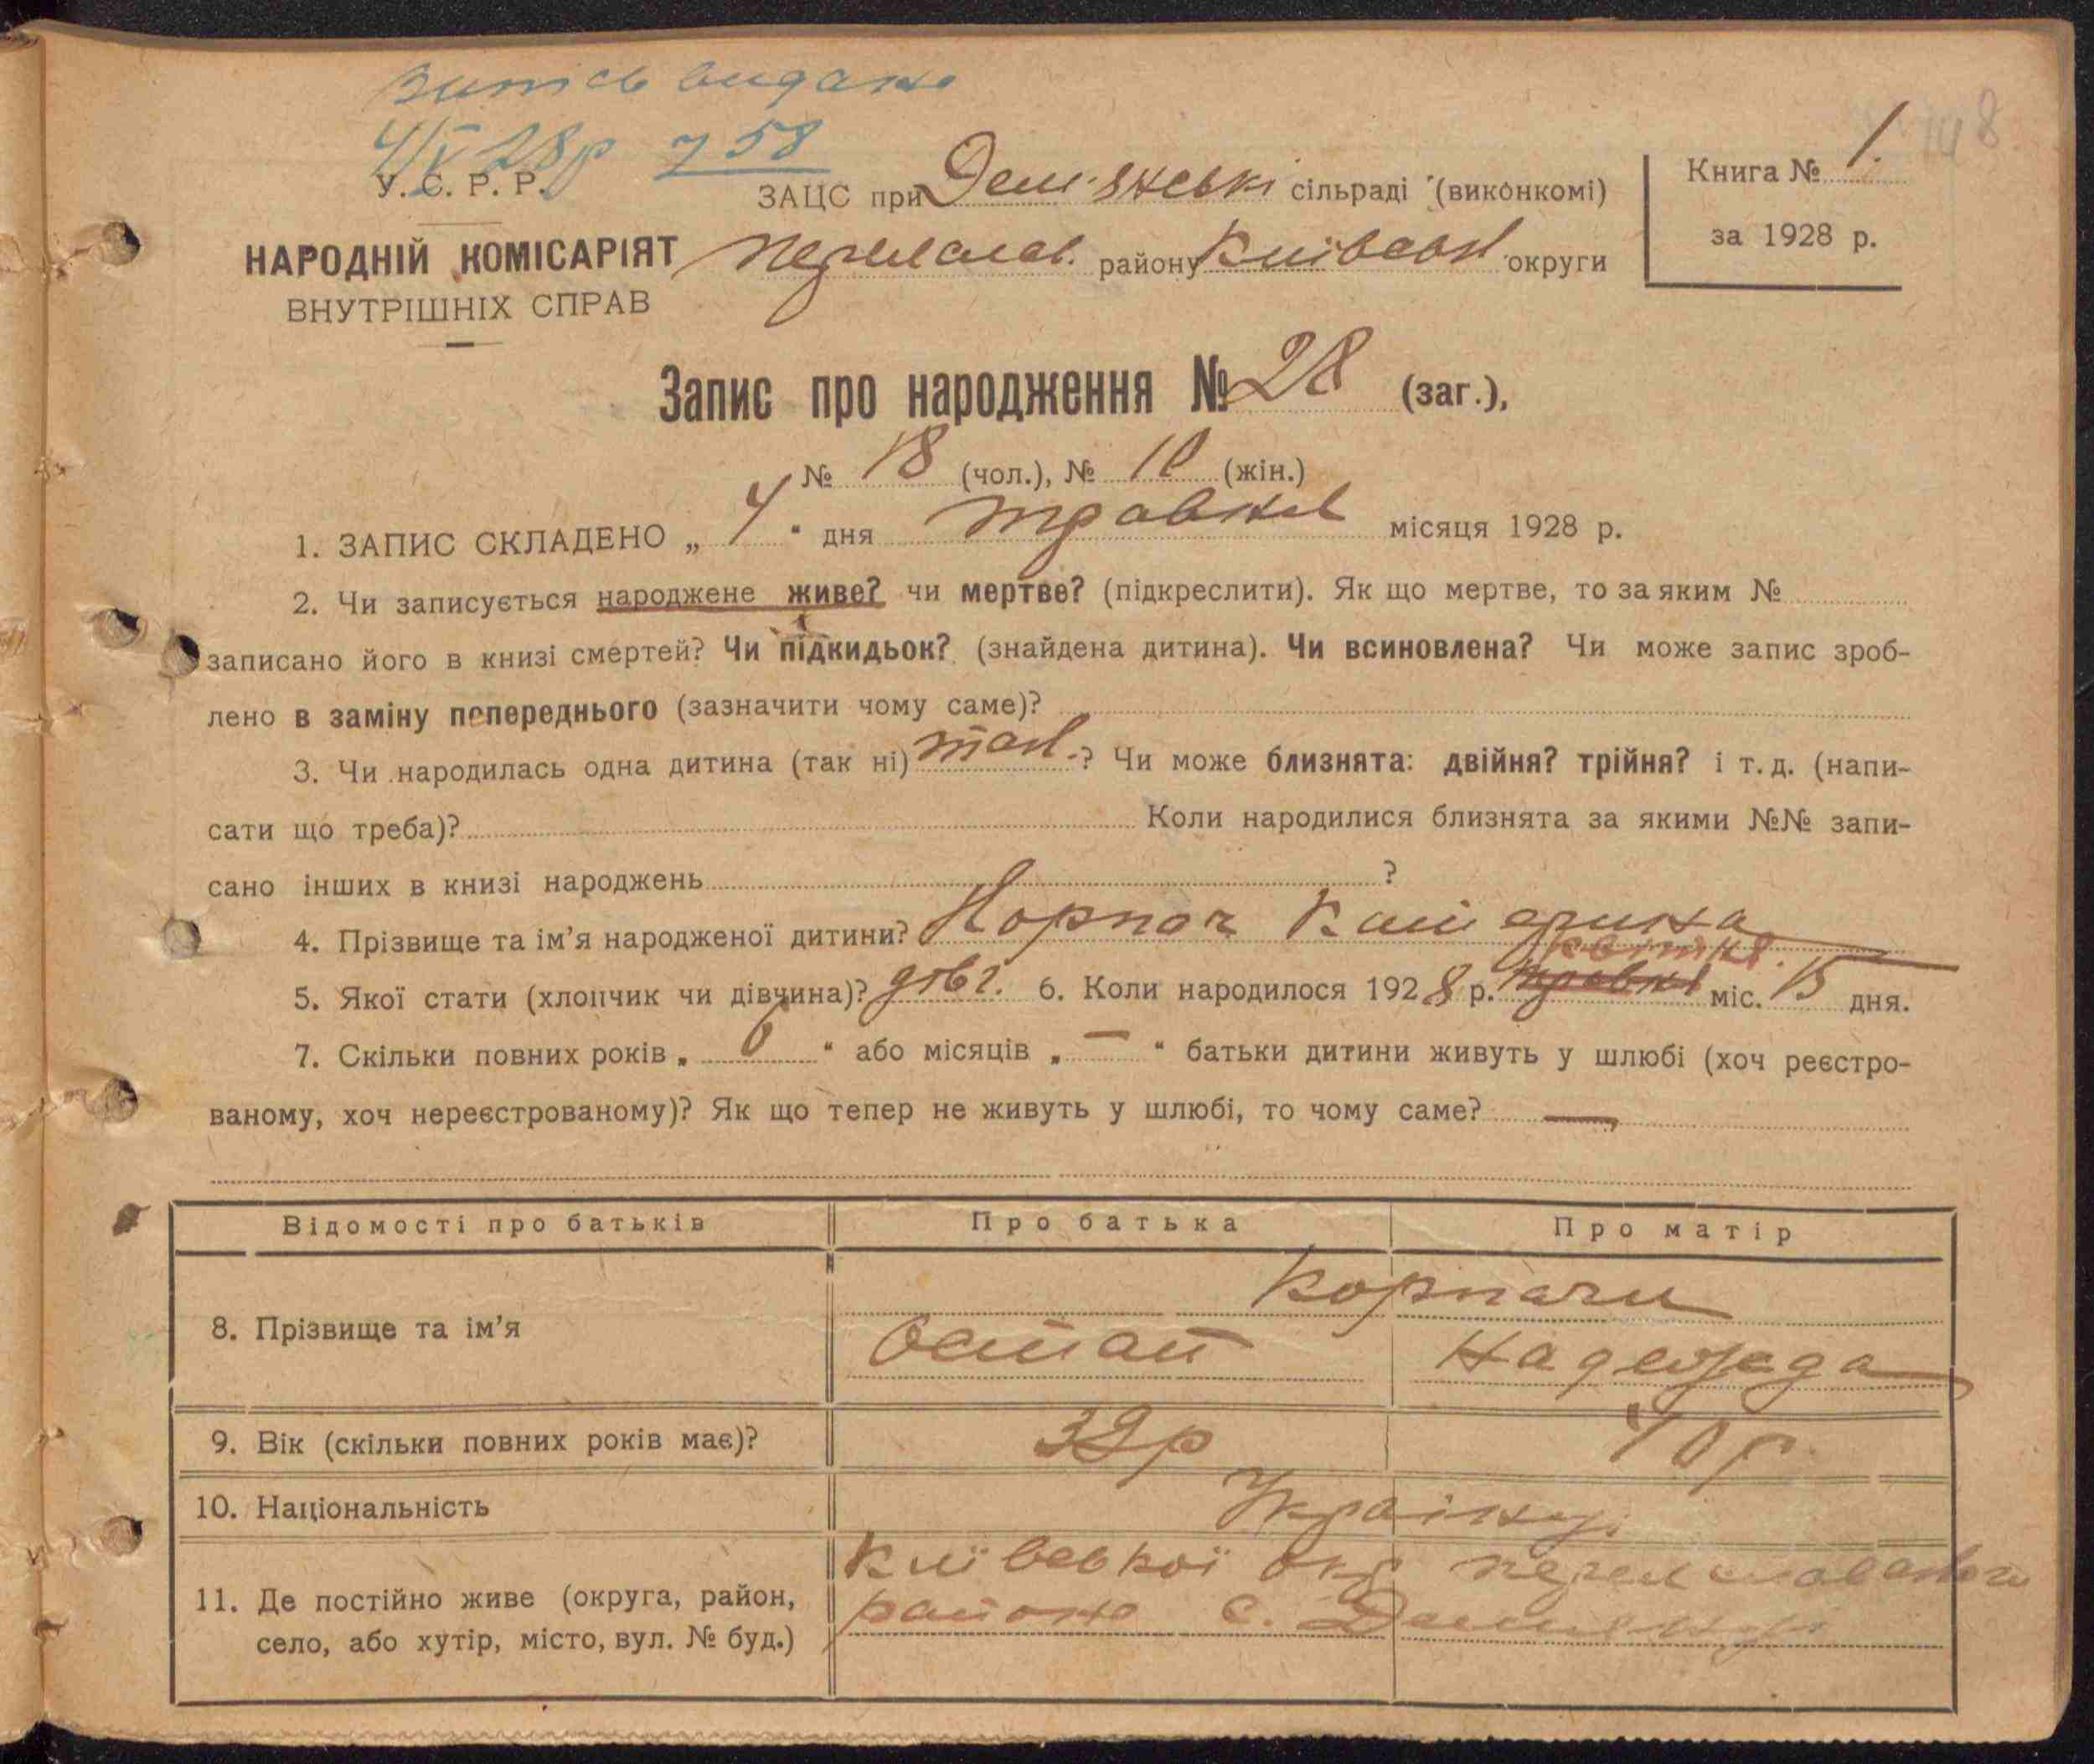 запісь видано
4/V 28р 58
У. С. Р. Р.
НАРОДНІЙ КОМІСАРІЯТ
ВНУТРІШНІХ СПРАВ
ЗАЦС при Дем'янські сільраді (виконкомі)
Переяслав. району Київськ округи
Книга № 1.
за 1928 р.
148
Запис про народження № 28 (заг.),
№ 18 (чол.), № 10 (жін.)
1. ЗАПИС СКЛАДЕНО „ 4 “ дня травня місяця 1928 р.
2. Чи записується народжене живе? чи мертве? (підкреслити). Як що мертве, то за яким №
записано його в книзі смертей? Чи підкидьок? (знайдена дитина). Чи всиновлена? Чи може запис зроб-
лено в заміну попереднього (зазначити чому саме)?
3. Чи народилась одна дитина (так ні) так ? Чи може близнята: двійня? трійня? і т. д. (напи-
сати що треба)? Коли народилися близнята за якими №№ запи-
сано інших в книзі народжень ?
4. Прізвище та ім’я народженої дитини? Корпач Катерина
5. Якої стати (хлопчик чи дівчина)? дівч. 6. Коли народилося 1928 р. травня квітня міс. 15 дня.
7. Скільки повних років „ 6 “ або місяців „ — “ батьки дитини живуть у шлюбі (хоч реєстро-
ваному, хоч нереєстрованому)? Як що тепер не живуть у шлюбі, то чому саме? —
Відомості про батьків Про батька Про матір
8. Прізвище та ім’я Корпачи
Остап Надежда
9. Вік (скільки повних років має)? 39р 40р.
10. Національність Україн
11. Де постійно живе (округа, район,
село, або хутір, місто, вул. № буд.)
Київської окр Переяславського
району с. Дем'янці